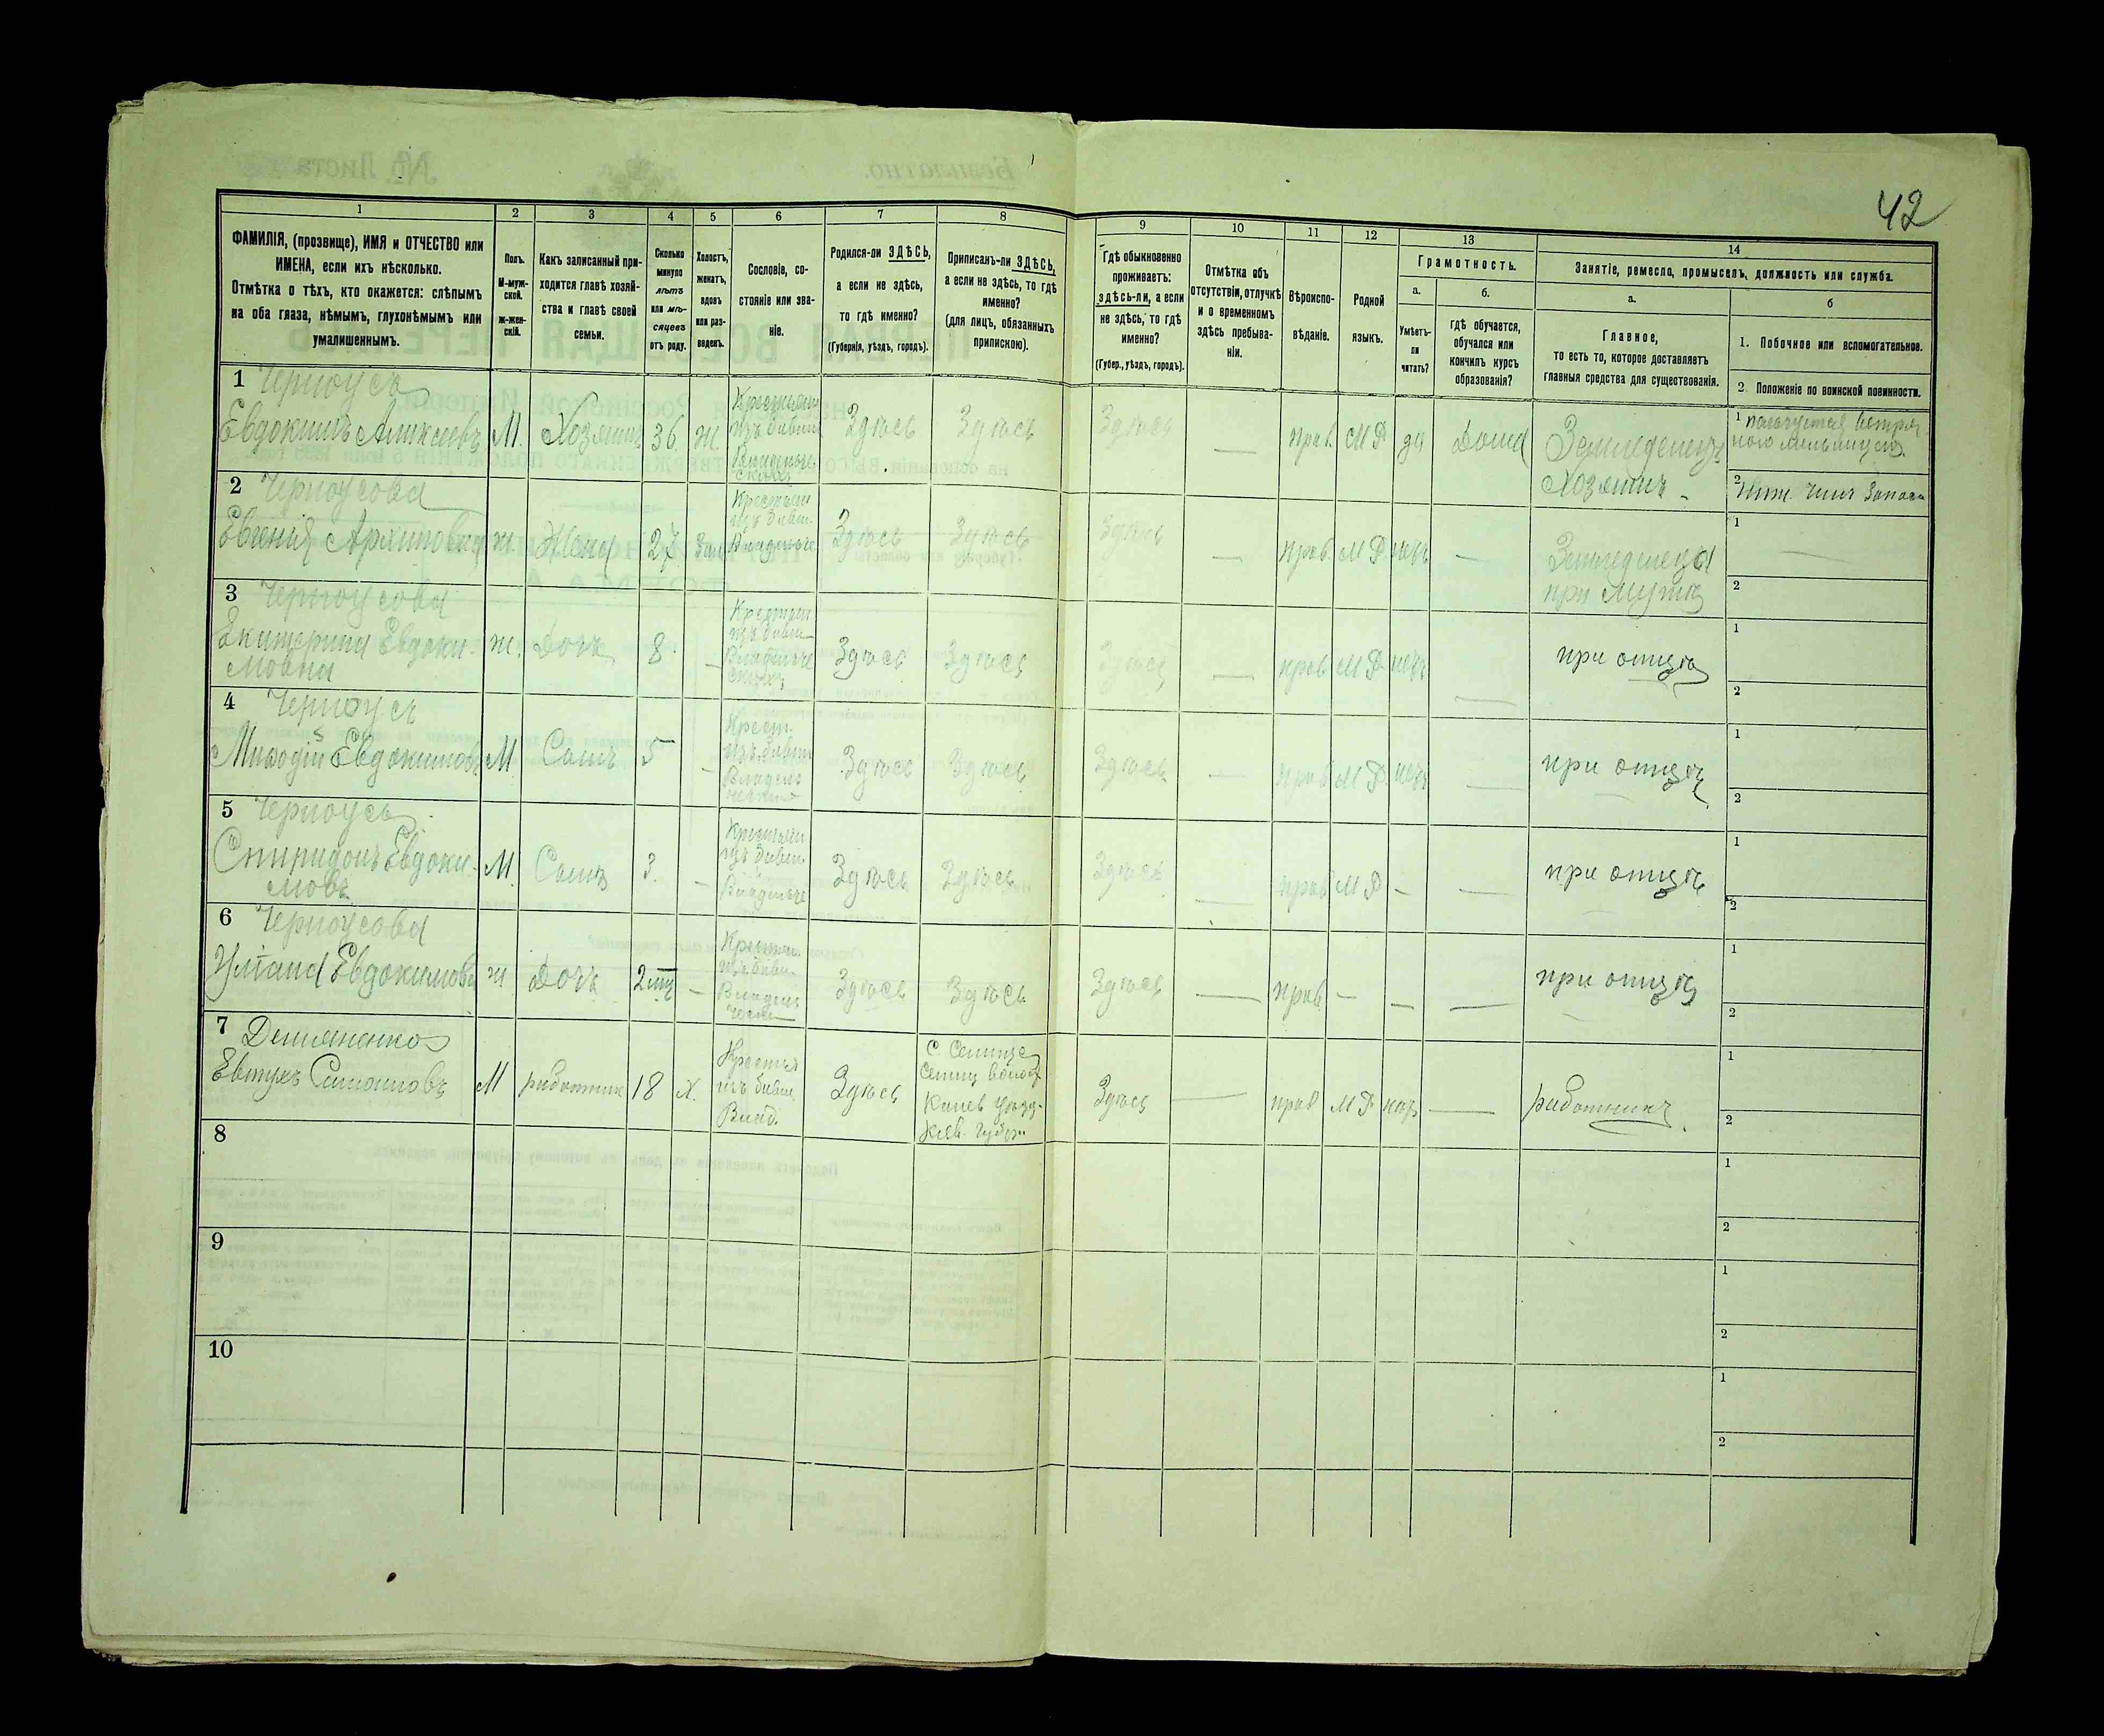 42
1
2
3
4
5
6
7
8
9
10
11
12
13
14
ФАМИЛІЯ, (прозвище), ИМЯ и ОТЧЕСТВО или
ИМЕНА, если ихъ нѣсколько.
Отмѣтка о тѣхъ, кто окажется: слѣпымъ
на оба глаза, нѣмымъ, глухонѣмымъ или
умалишеннымъ.
Полъ.
М-муж-
ской.
ж-жен-
скій.
Какъ записанный при-
ходится главѣ хозяй-
ства и главѣ своей
семьи.
Сколько
минуло
лѣтъ
или мѣ-
сяцевъ
отъ роду.
Холостъ,
женатъ,
вдовъ
или раз-
веденъ.
Сословіе, со-
стояніе или зва-
ніе.
Родился-ли ЗДѢСЬ,
а если не здѣсь,
то гдѣ именно?
(Губернія, уѣздъ, городъ).
Приписанъ-ли ЗДѢСЬ,
а если не здѣсь, то гдѣ
именно?
(для лицъ, обязанныхъ
припискою).
Гдѣ обыкновенно
проживаетъ:
здѣсь-ли, а если
не здѣсь, то гдѣ
именно?
(Губер., уѣздъ, городъ).
Отмѣтка объ
отсутствіи, отлучкѣ
и о временномъ
здѣсь пребыва-
ніи.
Вѣроиспо-
вѣданіе.
Родной
языкъ.
Грамотность.
а.
Умѣетъ-
ли
читать?
б.
гдѣ обучается,
обучался или
кончилъ курсъ
образованія?
Занятіе, ремесло, промыселъ, должность или служба.
а.
Главное,
то есть то, которое доставляетъ
главныя средства для существованія.
б
1. Побочное или вспомогательное.
2. Положеніе по воинской повинности.
1 Черноусъ
Евдокимъ Алексеевъ М. Хозяинъ 36 ж. Здѣсь Здѣсь Здѣсь — прав. М Р да Дома Земледелецъ
Хозяинъ
1
2 Ниж. Чинъ Запаса
2 Черноусова
Евгенія Архиповна ж Жена 27 Зам Здѣсь Здѣсь Здѣсь — прав. М Р нетъ — Земледелецъ
при мужѣ
1 —
2
3 Черноусова
Екатерина Евдоки-
мовна ж. Дочь 8 — Здѣсь Здѣсь Здѣсь — прав М Р нетъ — при отцѣ
1
2
4 Черноусъ
Мифодій Евдокимовъ М Сынъ 5 — Крест.
изъ бывш
Владель
ческ
Здѣсь Здѣсь Здѣсь — прав М Р. нетъ — при отцѣ
1
2
5 Черноусъ
Спиридонъ Евдоки-
мовъ М. Сынъ 3. — Здѣсь Здѣсь Здѣсь — прав М Р — — при отцѣ
1
2
6 Черноусова
Уліана Евдокимова ж Дочь 2 — Здѣсь Здѣсь Здѣсь — прав. — — — при отцѣ
1
2
7 Демяненко
Евтухъ М работник 18 х. Крестья
изъ бывш.
Влад.
Здѣсь
Киев уезд
Киев. Губер
Здѣсь — прав М Р — работникъ
1
2
8
1
2
9
1
2
10
1
2